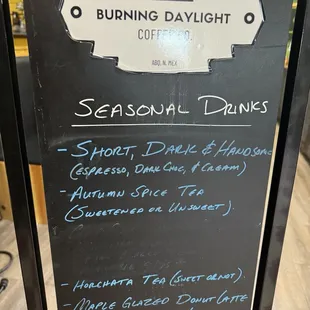 BURNING DAYLIGHT
COFFEE CO.
SEASONAL DRINKS
- SHORT, DARK & HANDSOME
(ESPRESSO, DARK CHOC, & CREAM)
- AUTUMN SPICE TEA
(SWEETENED OR UNSWEET).
- HORCHATA TEA (SWEET OR NOT).
- MAPLE GLAZED DONUT LATTE